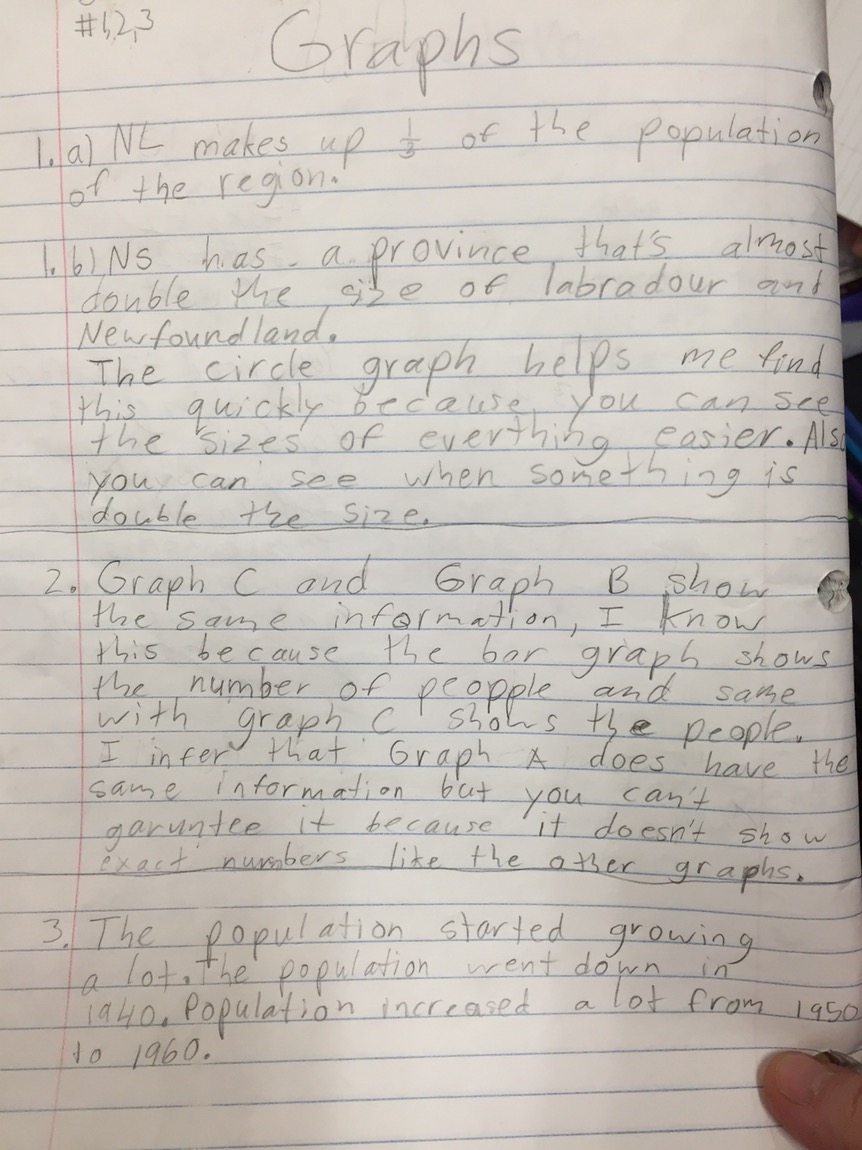 #1,2,3
Graphs
1. a) NL makes up 1/3 of the population
of the region.
1. b) NS has a province that's almost
double the size of labradour and
Newfoundland.
The circle graph helps me find
this quickly because you can see
the sizes of everthing easier. Also
you can see when something is
double the size.
2. Graph C and Graph B show
the same information, I know
this because the bar graph shows
the number of peopple and same
with graph C shows the people.
I infer that Graph A does have the
same information but you can't
garuntee it because it doesn't show
exact numbers like the other graphs.
3. The population started growing
a lot. The population went down in
1940. Population increased a lot from 1950
to 1960.